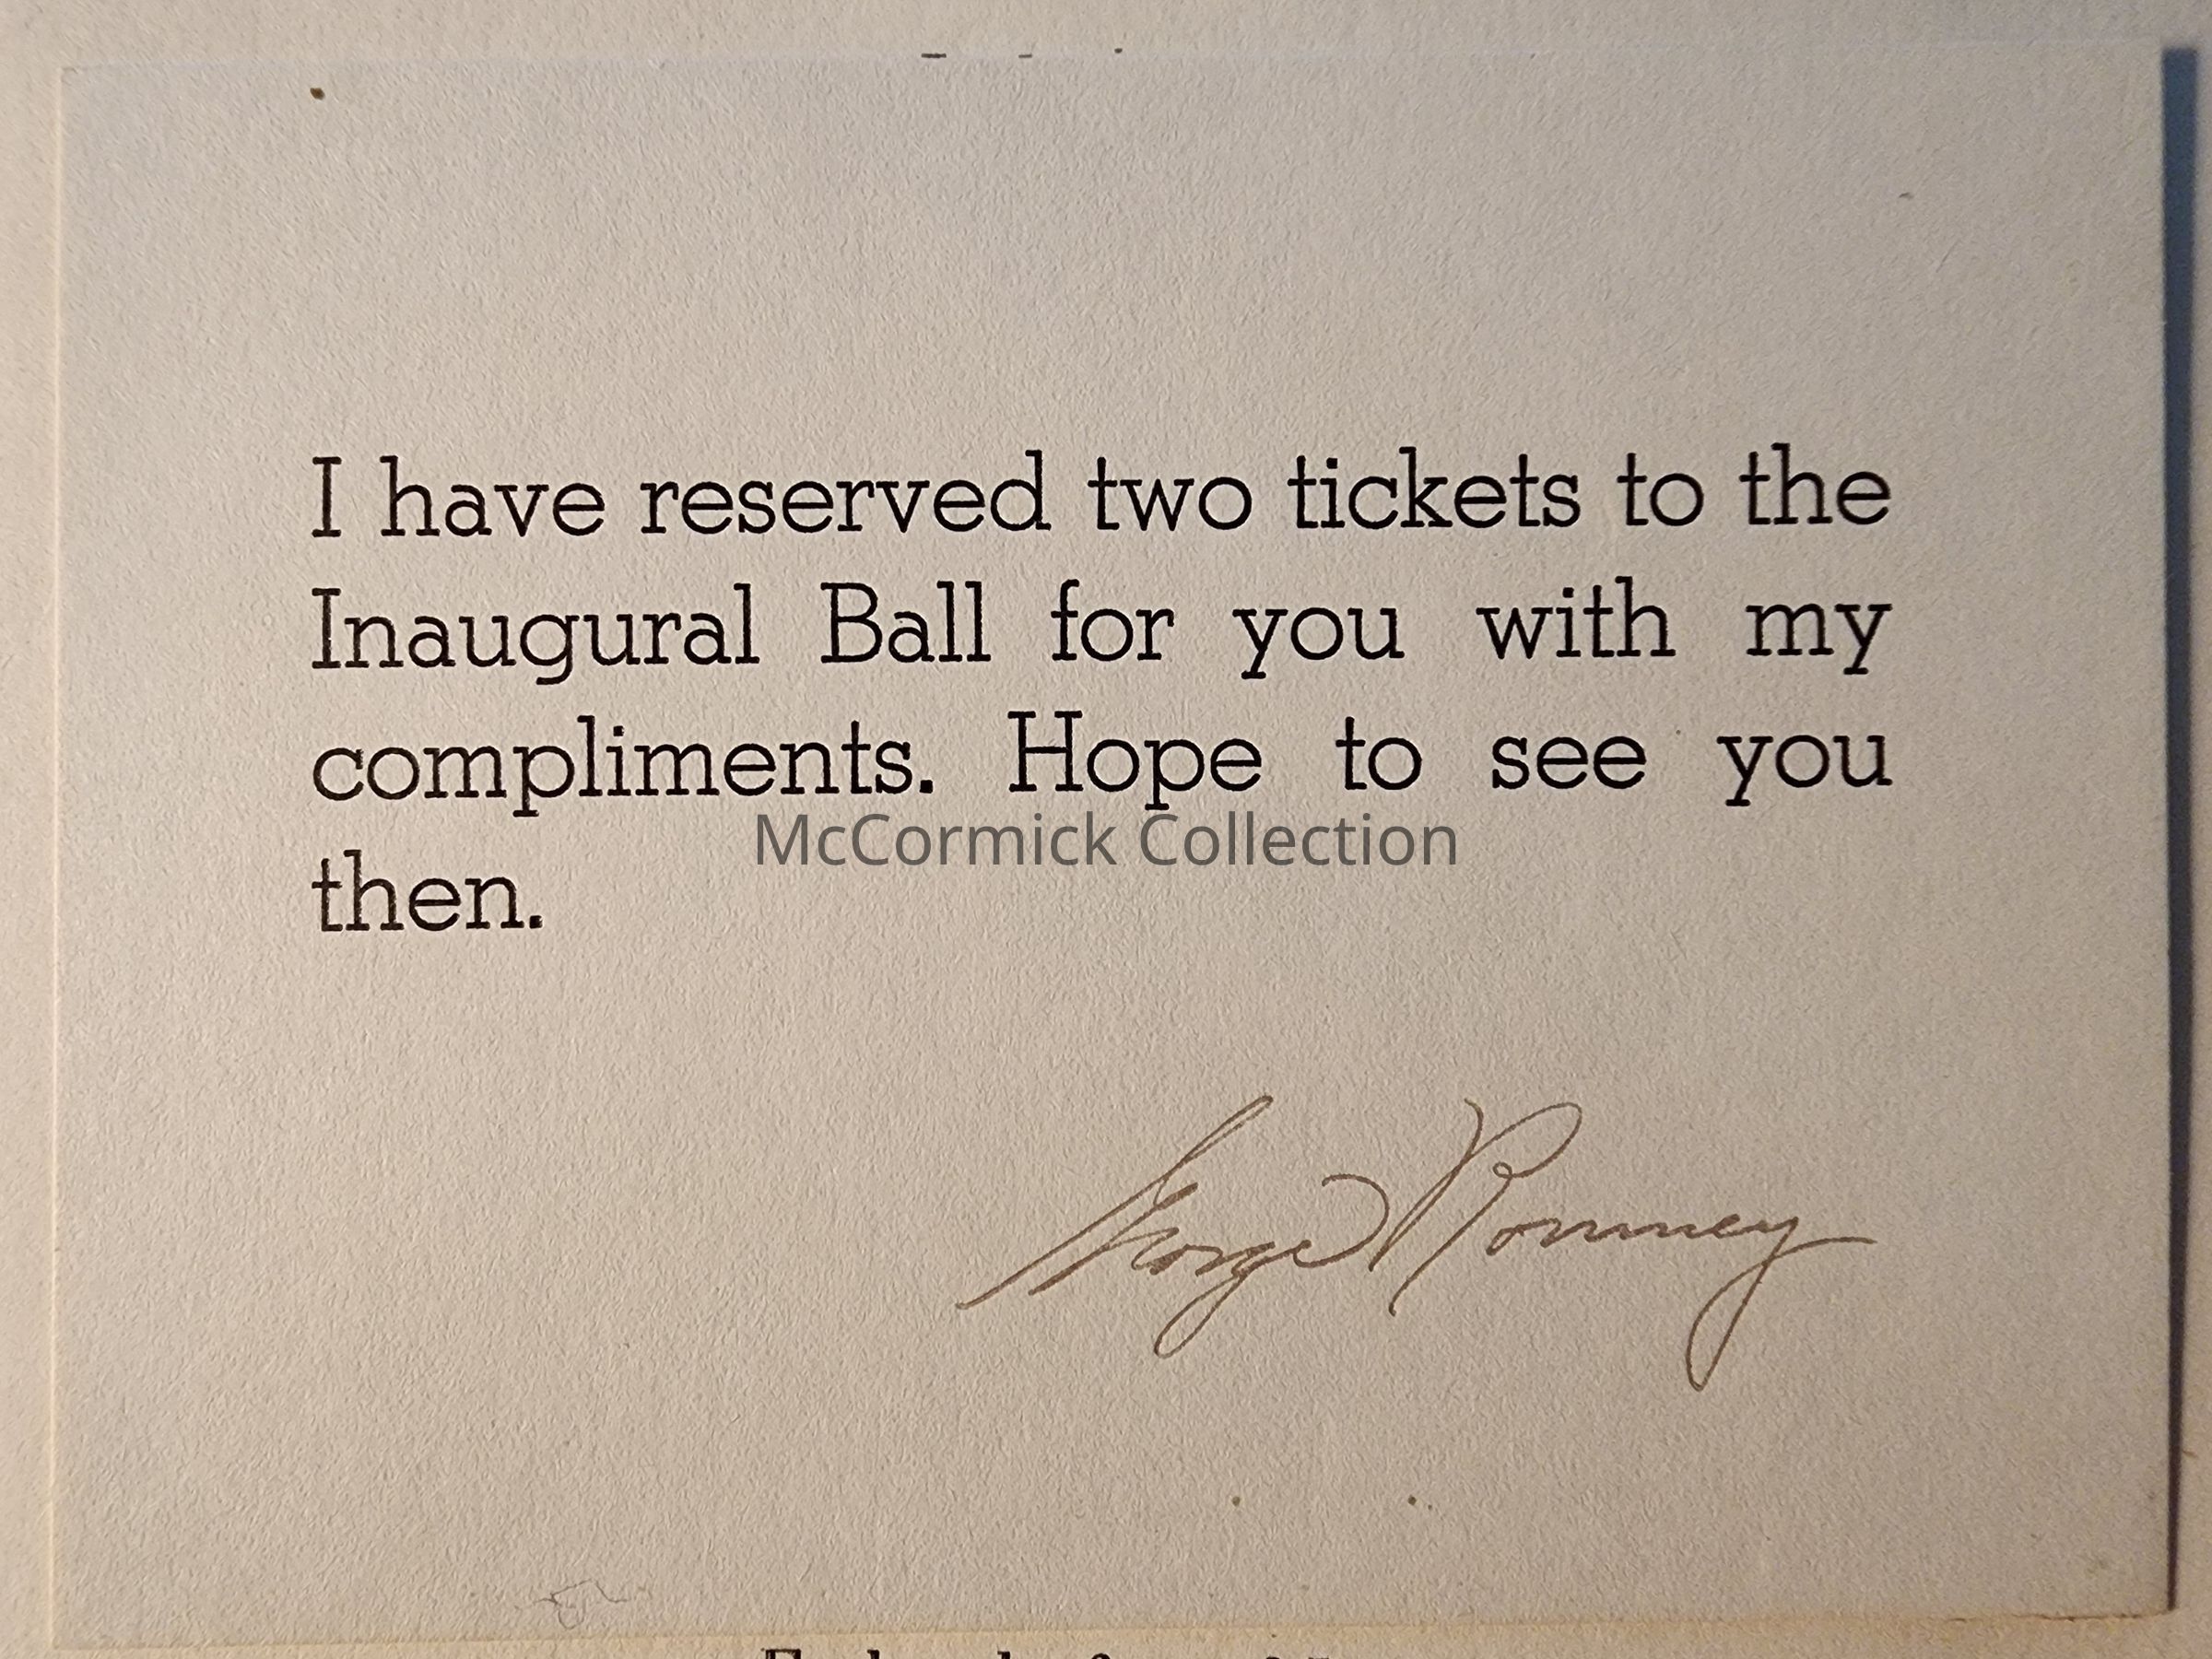 I have reserved two tickets to the
Inaugural Ball for you with my
compliments. Hope to see you
McCormick Collection
then.
George Romney